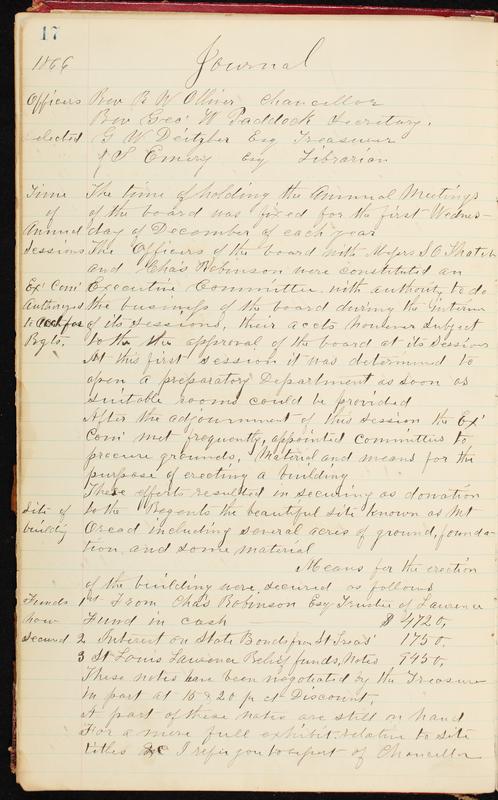 17
1866 Journal
Officers Rev R W Olliver Chancellor
Rev Geo' W Paddock Secretary.
elected G W Deitzler Esq Treasurer
J S Emery Esq Librarian
Time The time of holding the Annual Meetings
of of the board was fixed for the first Wednes-
Annual day of December of each year
Sessions The Officers of the board with Messrs S O Thatcher
and Chas Robinson were constituted an
Ex' Com' Executive Committee with authority to do
Authorized the business of the board during the interim
to act for of its sessions, their acts however subject
Rgts. to the the approval of the board at its sessions
At this first session it was determined to
open a preparatory Department as soon as
suitable rooms could be provided
After the adjournment of this session the Ex'
Com' met frequently, appointed committees to
procure grounds, Material and means for the
purpose of erecting a building
These efforts resulted in securing as donation
Site of to the Regents the beautiful site known as Mt
building Oread including several acres of ground, founda-
tion, and some material
Means for the erection
of the building were secured as follows
Funds 1st From Chas Robinson Esq Trustee of Lawrence
how Fund in cash $ 9472,
secured 2 Interest on State Bonds from St Treas' 1750.
3 St Louis Lawrence Relief funds, Notes 9450,
These notes have been negotiated by the Treasurer
in part at 15 & 20 pr ct Discount.
A part of these notes are still on hand
For a more full exhibit relative to site
titles &c I refer you to report of Chancellor